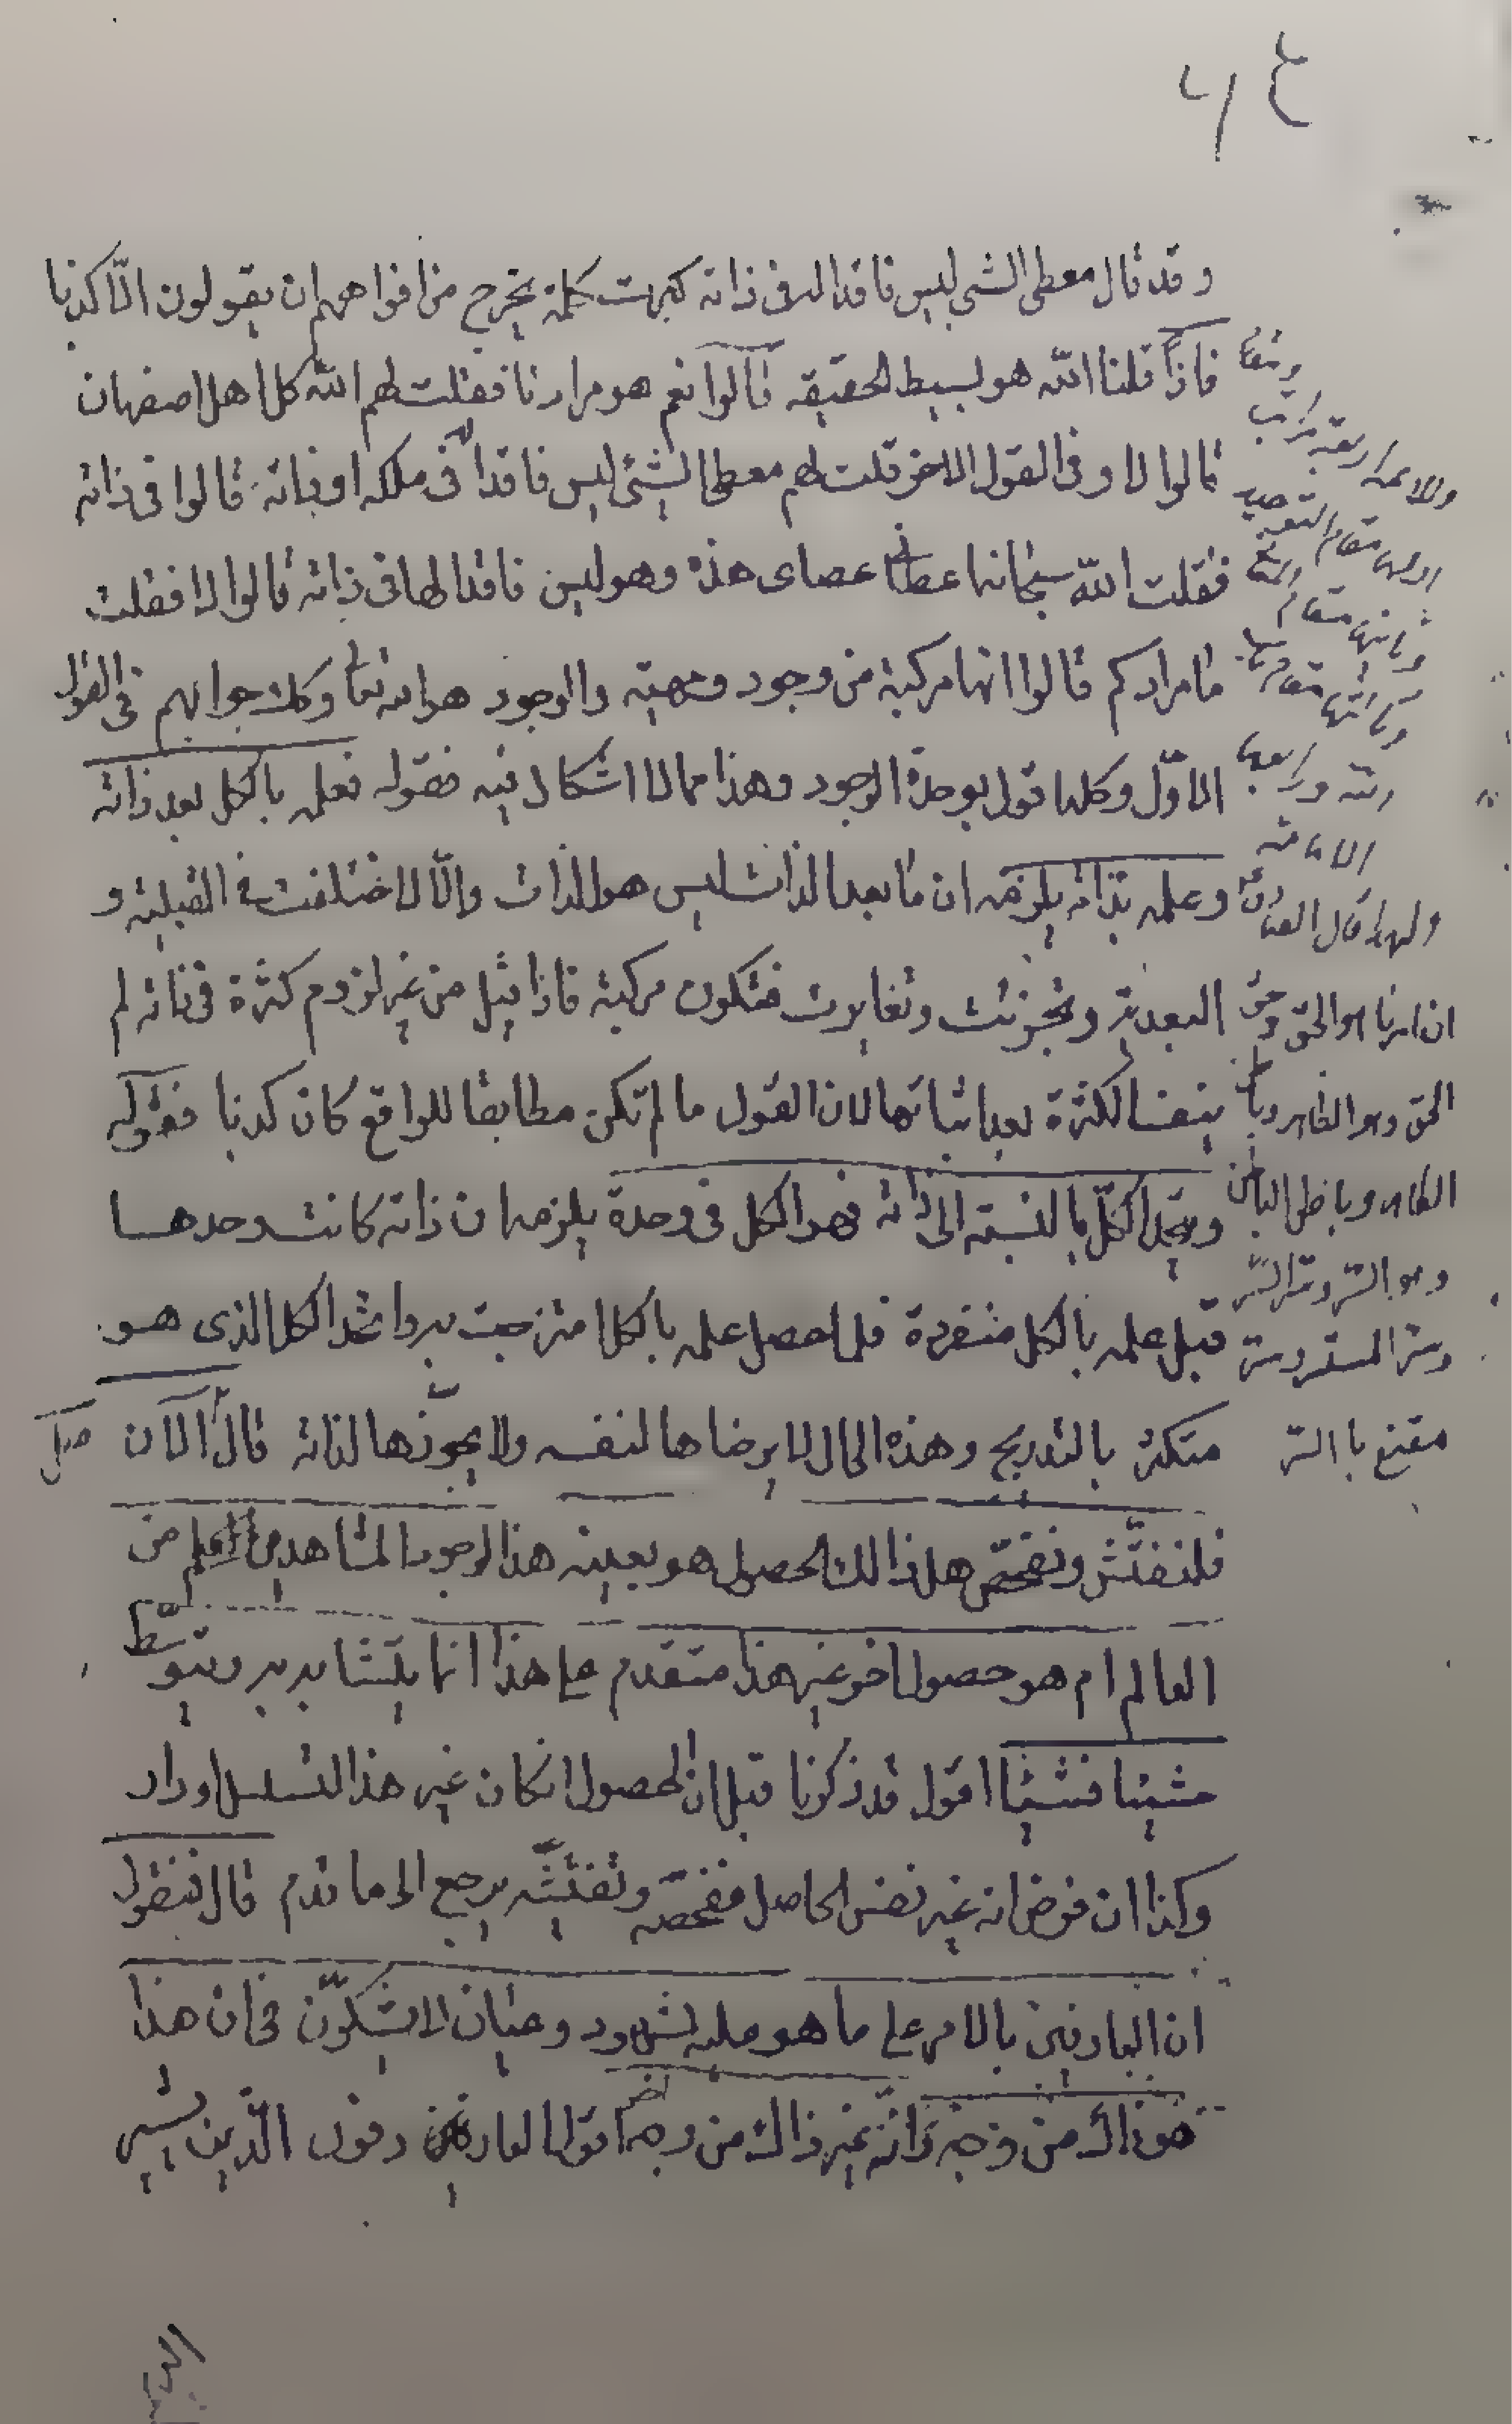 وقد قال معطى الشى ليس فاقدا له فى ذاته كبرت كلمة يخرج من افواههم ان يقولون الّا كذبا
فاذا قلنا الله هو بسيط الحقيقه قالوا نعم هو مرادنا فقلت لهم الله كل اهل اصفهان
قالوا لا وفى القول الاخر قلت لهم معطى الشئ ليس فاقدا له فى ملكه او ذاته قالوا فى ذاته
فقلت الله سبحانه اعطانى عصاى هذه وهو ليس فاقدا لها فى ذاته قالوا لا فقلت
ما مرادكم قالوا انها مركبة من وجود ومهية والوجود هو الله تعا وكك جوابهم فى القول
الاوّل وكلها قول بوحدة الوجود وهذا مما لا اشكال فيه فقوله فعلمه بالكل بعد ذاته
وعلمه بذاته يلزمه ان ما بعد الذات ليس هو الذات والّا لاختلفت فى القبلية و
البعدية وتجزئت وتغايرت فتكون مركبة فاذا قيل من غير لزوم كثرة فى ذاته لم
ينف الكثرة بعد اثباتها لان القول ما لم تكن مطابقا للواقع كان كذبا فقوله
ويتحد الكلّ بالنسبة الى ذاته فهو الكل فى وحدة يلزمه ان ذاته كانت وحدها
قبل علمه بالكل منفردة فلما حصل علمه بالكل امتزجت به واتحد الكل الذى هو
متكثر بالتدريج وهذه الحال لا يرضاها لنفسه ولا يجوّزها لذاته قال الآن
فلنفتّش ونفحّص هل ذالك الحصول هو بعينه هذا الوجود المشاهد من
العالم ام هو حصول اخر غير هذا متقدم على هذا انما يتشابه به ويتوسّط
شيئا فشيئا اقول قد ذكرنا قبل ان الحصول ان كان غير هذا لتسلسل او دار
وكذا ان فرض انه غير نفس الحاصل ففحصه وتفتيشه يرجع الى ما تقدم قال فنقول
ان العارفين بالامر على ما هو عليه لشهود وعيان لا يشكوّن فى ان هذا
هو ذاك من وجه وانّه غير ذاك من وجه اقول العارفين دون الّذين يشير
وتعا
وللائمه اربعة مراتب
اوليها مقام التوحيد
وثانيها مقام المعانى
وثالثها مقام
ورابعها
الامامة
ولهذا قال الصادق
ان امرنا هو الحق وحق
الحق وهو الظاهر وباطن
الظاهر وباطن الباطن
وهو السّر وسّر السّر
وسّر المستسر وسّر
مقنع باالسّر